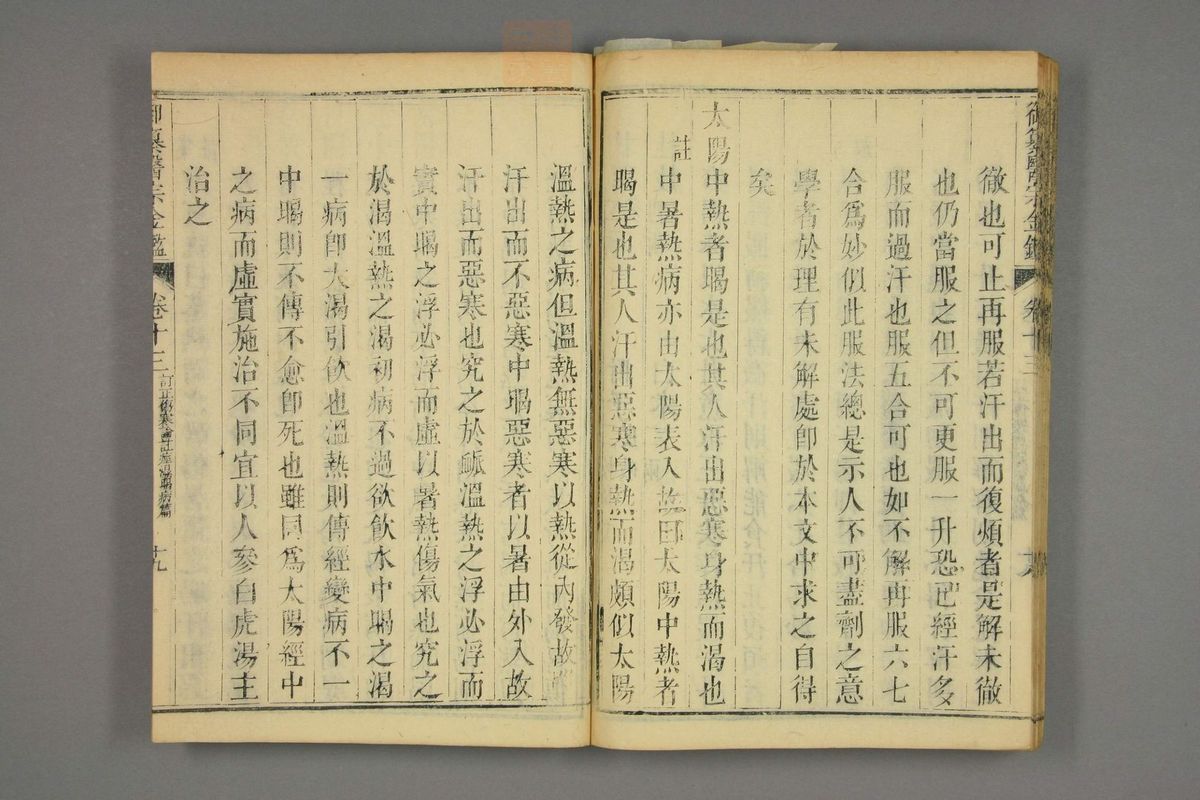 徹也可止再服若汗出而復煩者是解未徹
也仍當服之但不可更服一升恐已經汗多
服而過汗也服五合可也如不解再服六七
合爲妙似此服法總是示人不可盡劑之意
學者於理有未解處卽於本文中求之自得
矣
太陽中熱者暍是也其人汗出惡寒身熱而渴也
註中暑熱病亦由太陽表入故曰太陽中熱者
暍是也其人汗出惡寒身熱而渴頗似太陽
溫熱之病但溫熱無惡寒以熱從內發故
汗出而不惡寒中暍惡寒者以暑由外入故
汗出而惡寒也究之於脈溫熱之浮必浮而
實中暍之浮必浮而虛以暑熱傷氣也究之
於渴溫熱之渴初病不過欲飮水中暍之渴
一病卽大渴引飮也溫熱則傳經變病不一
中暍則不傳不愈卽死也雖同爲太陽經中
之病而虛實施治不同宜以人參白虎湯主
治之
御纂醫宗金鑑 卷十三 訂正傷寒論註 痙濕暍病篇 十九